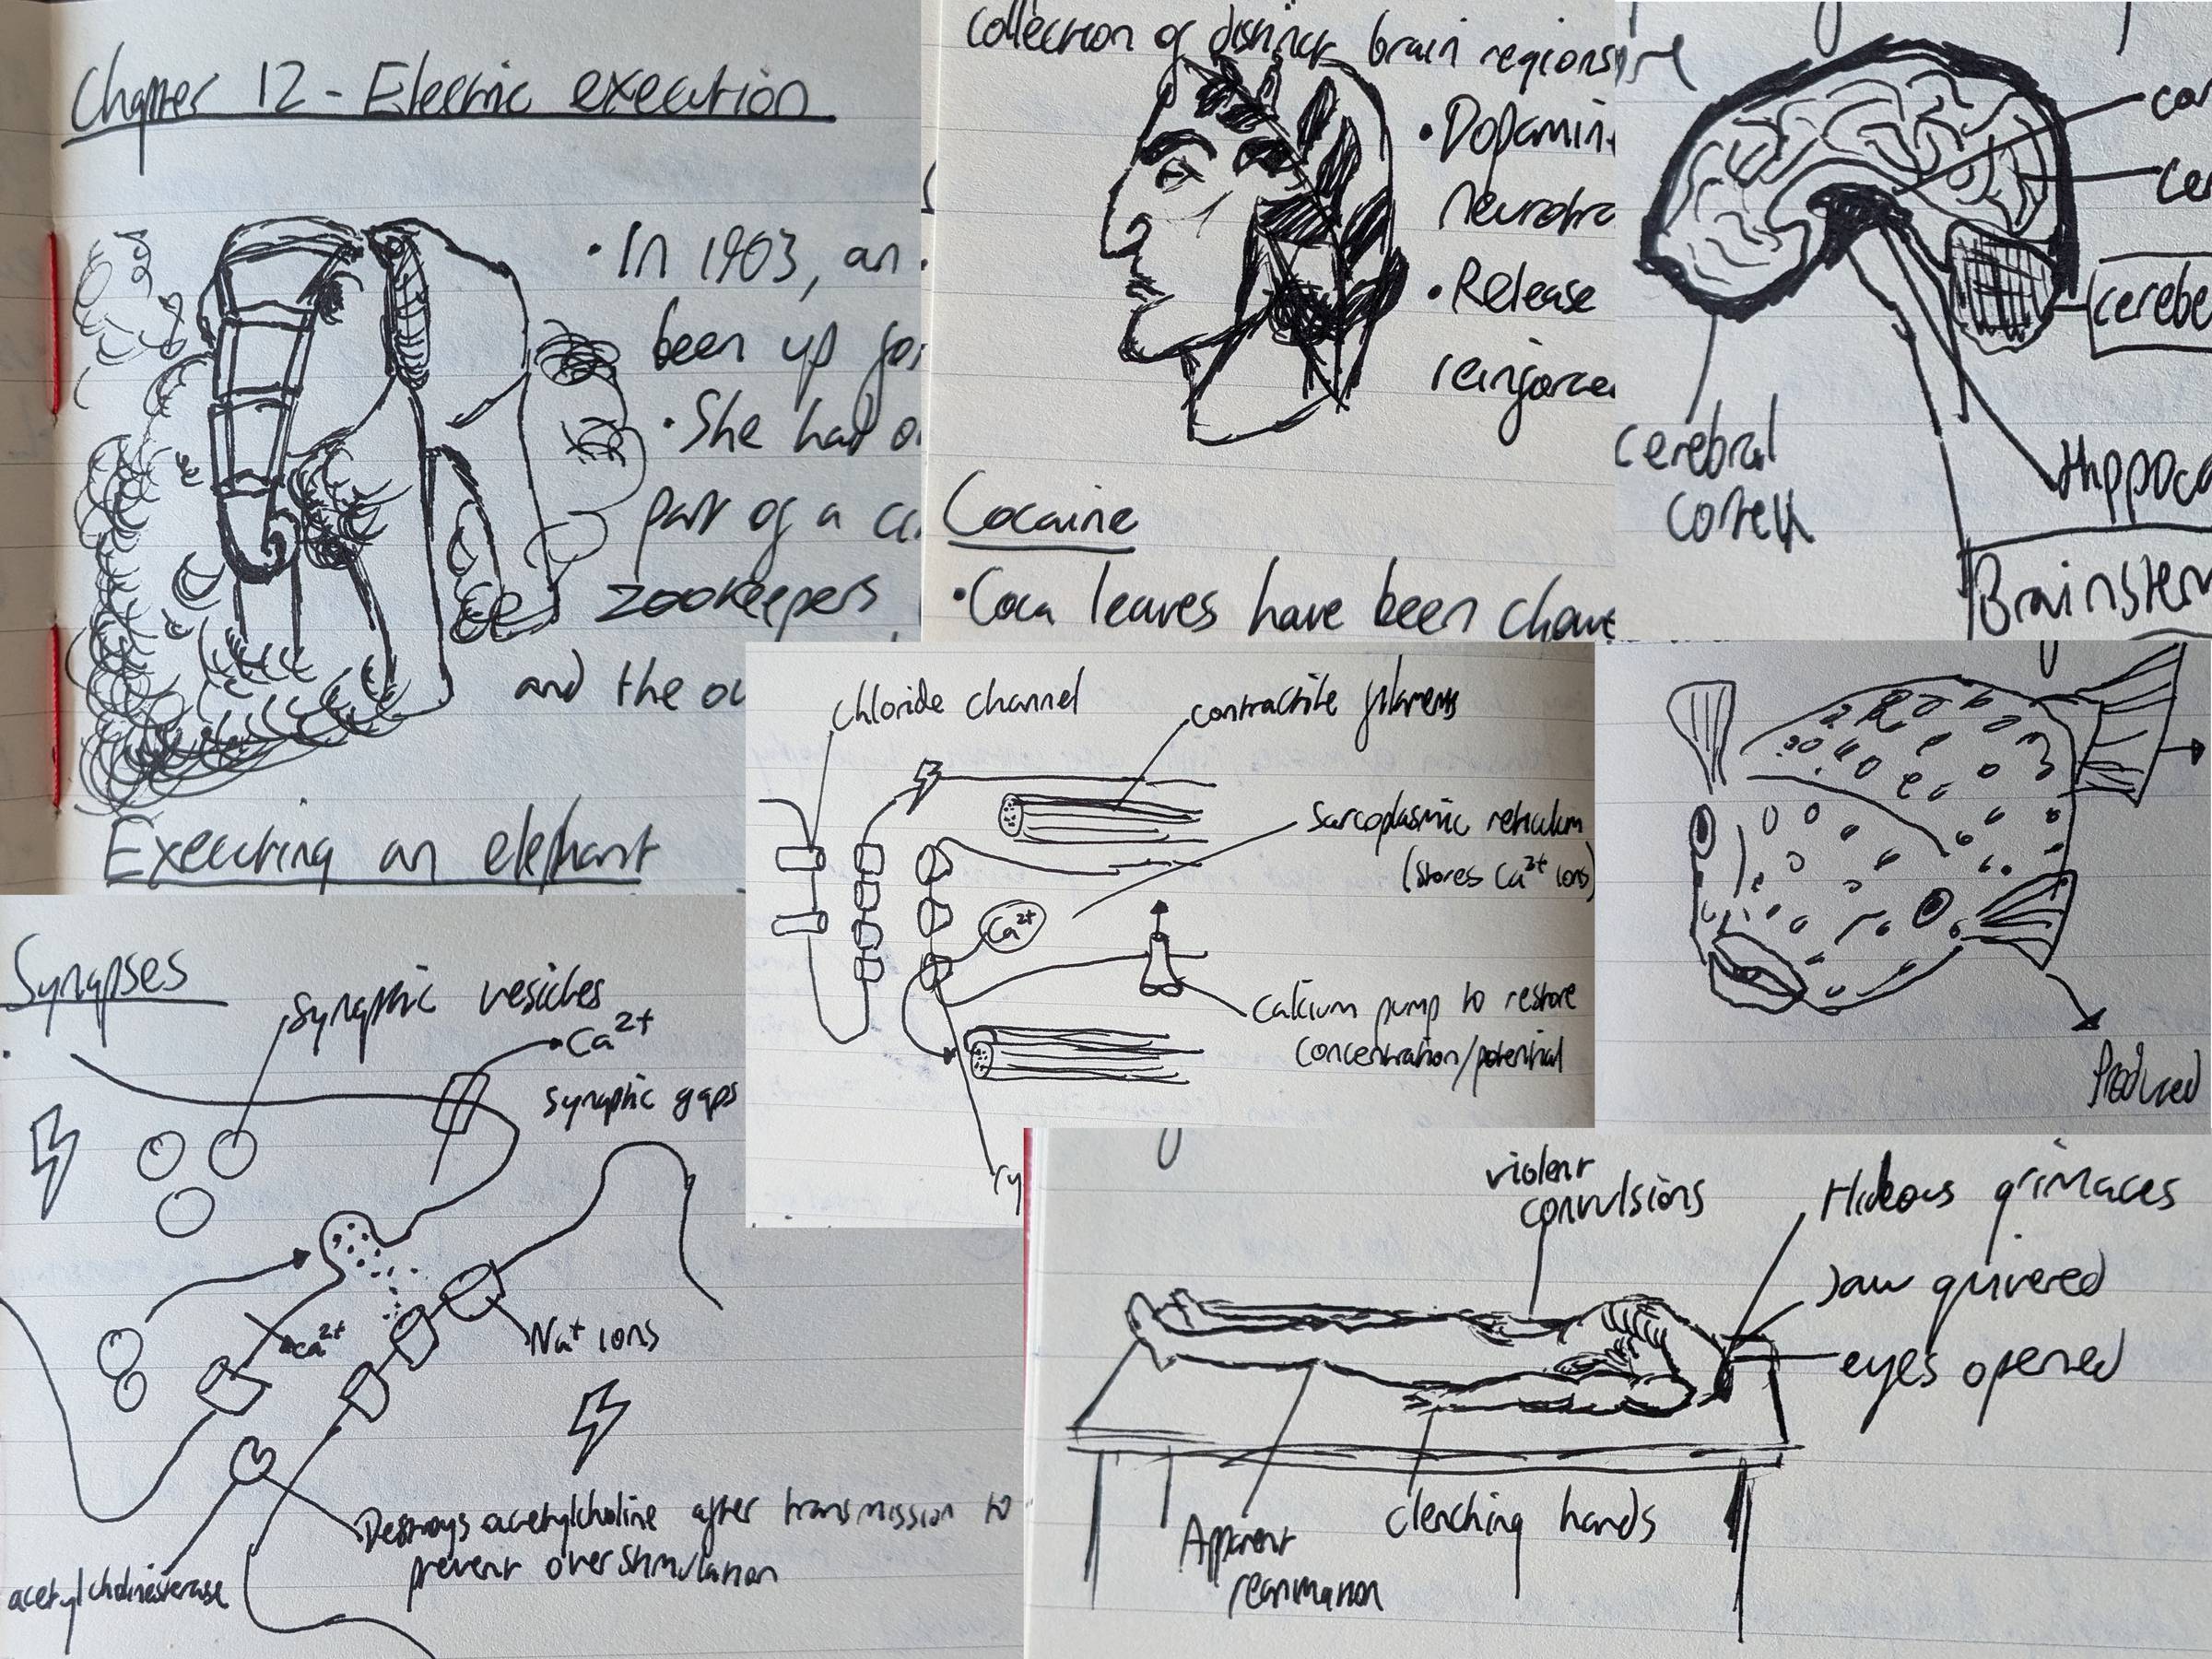 Chapter 12 - Electric execution
• In 1903, an
been up for
• She had
part of a
zookeepers
and the
Executing an elephant
collection of distinct brain regions
• Dopamin
neurotra
• Release
reinforce
Cocaine
• Coca leaves have been chewe
cor
ce
cerebe
cerebral
cortex
Hippoca
Brainstem
chloride channel
contractile filaments
Sarcoplasmic reticulum
(stores Ca²⁺ ions)
Ca²⁺
Calcium pump to restore
concentration/potential
Produced
Synapses
synaptic vesicles
Ca²⁺
synaptic gaps
Ca²⁺
Na⁺ ions
Destroys acetylcholine after transmission to
prevent overstimulation
acetylcholinesterase
violent
convulsions
Hideous grimaces
Jaw quivered
eyes opened
clenching hands
Apparent
reanimation